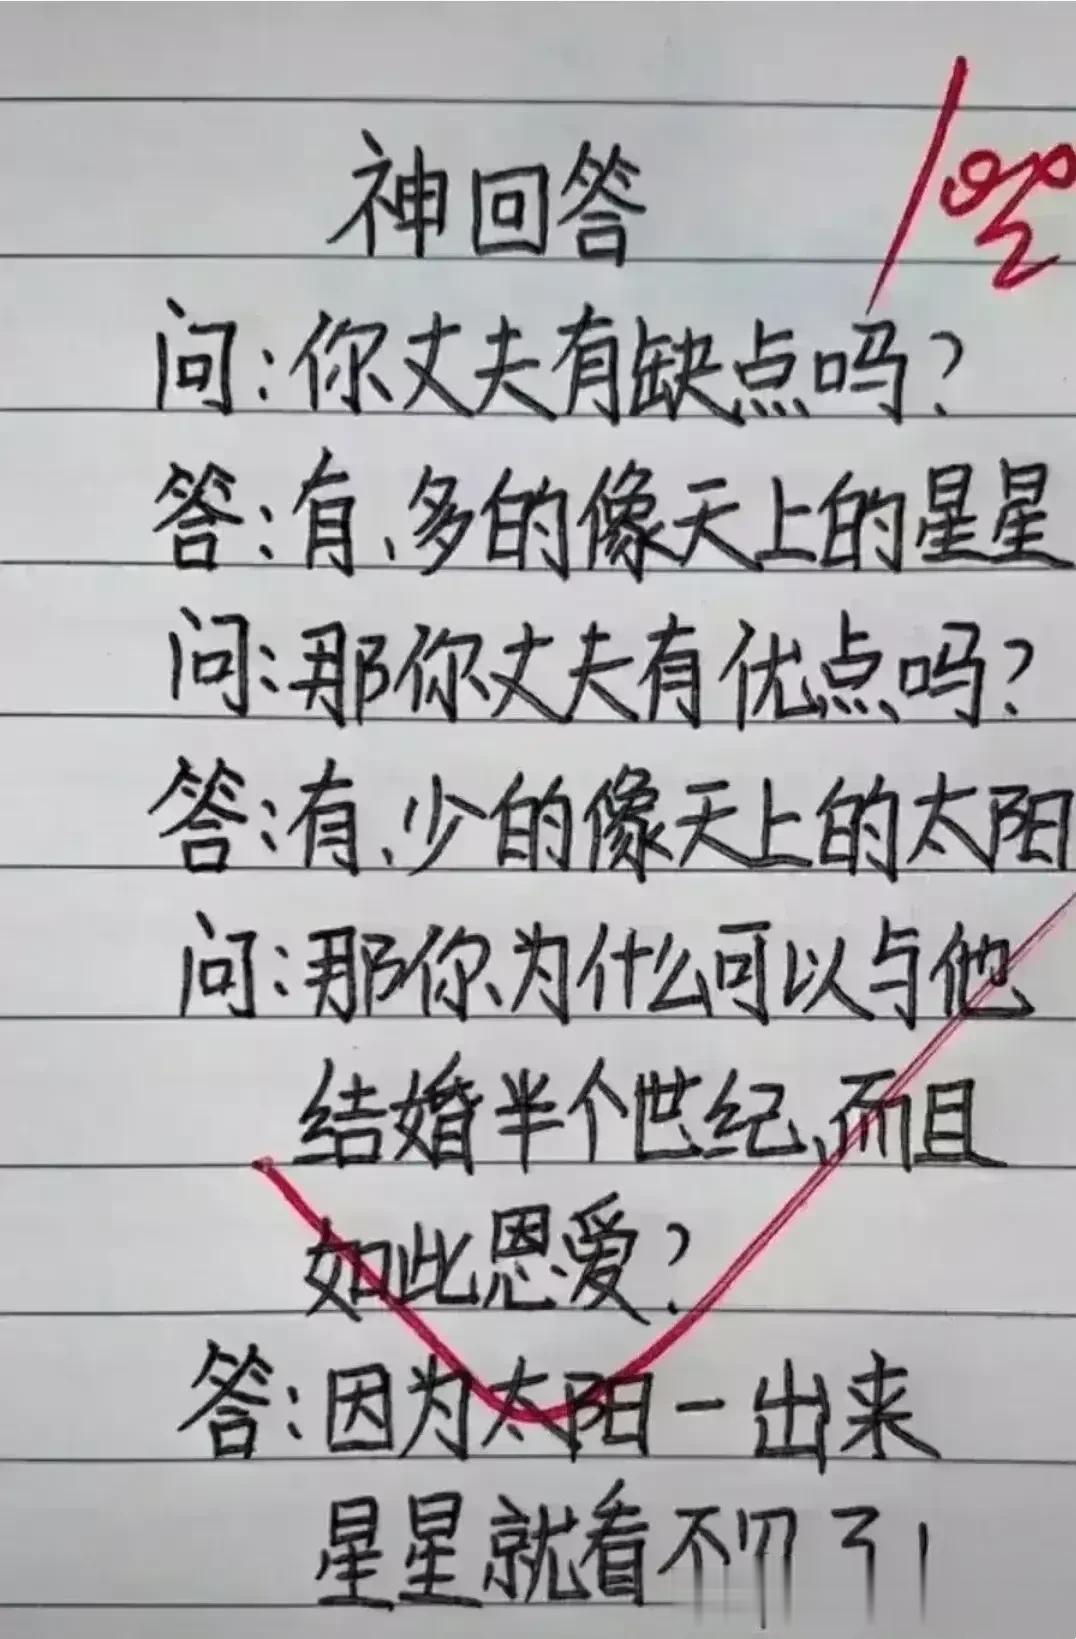 神回答
100
问：你丈夫有缺点吗？
答：有、多的像天上的星星
问：那你丈夫有优点吗？
答：有、少的像天上的太阳
问：那你为什么可以与他
结婚半个世纪、而且
如此恩爱？
答：因为太阳一出来
星星就看不见了！